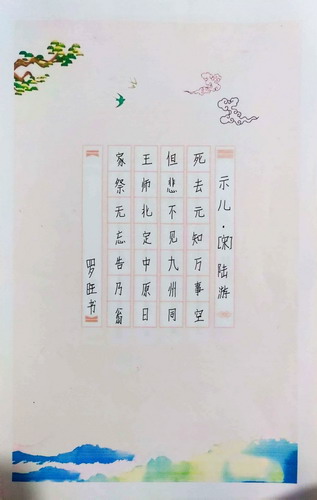 示儿·[宋]陆游
死去元知万事空
但悲不见九州同
王师北定中原日
家祭无忘告乃翁
罗旺书